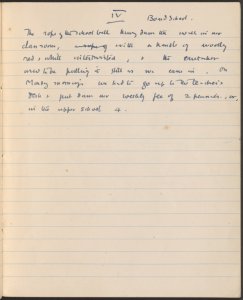 IV
Board School.
The rope of the school bell hung down the wall in our
classroom, with a kind of woolly
red & white , & the caretaker
used to be pulling it still as we came in. On
Monday mornings we had to go up to the teacher's
desk & put down our weekly fee of 2 pence, or,
in the upper school 4.